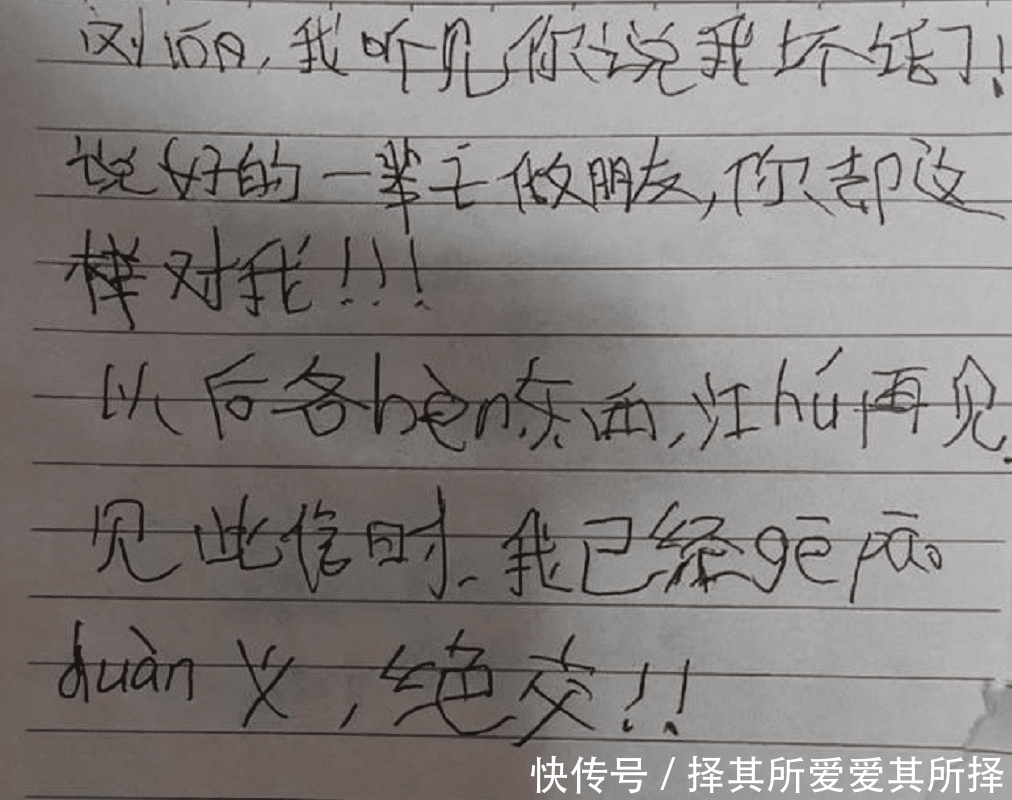 刘 我听见你说我坏话了!
说好的一辈子做朋友,你却这
样对我!!!
以后各bèn东西,江hú再见.
见此信时、我已经gē pāo
duàn义,绝交!!
快传号/择其所爱爱其所择